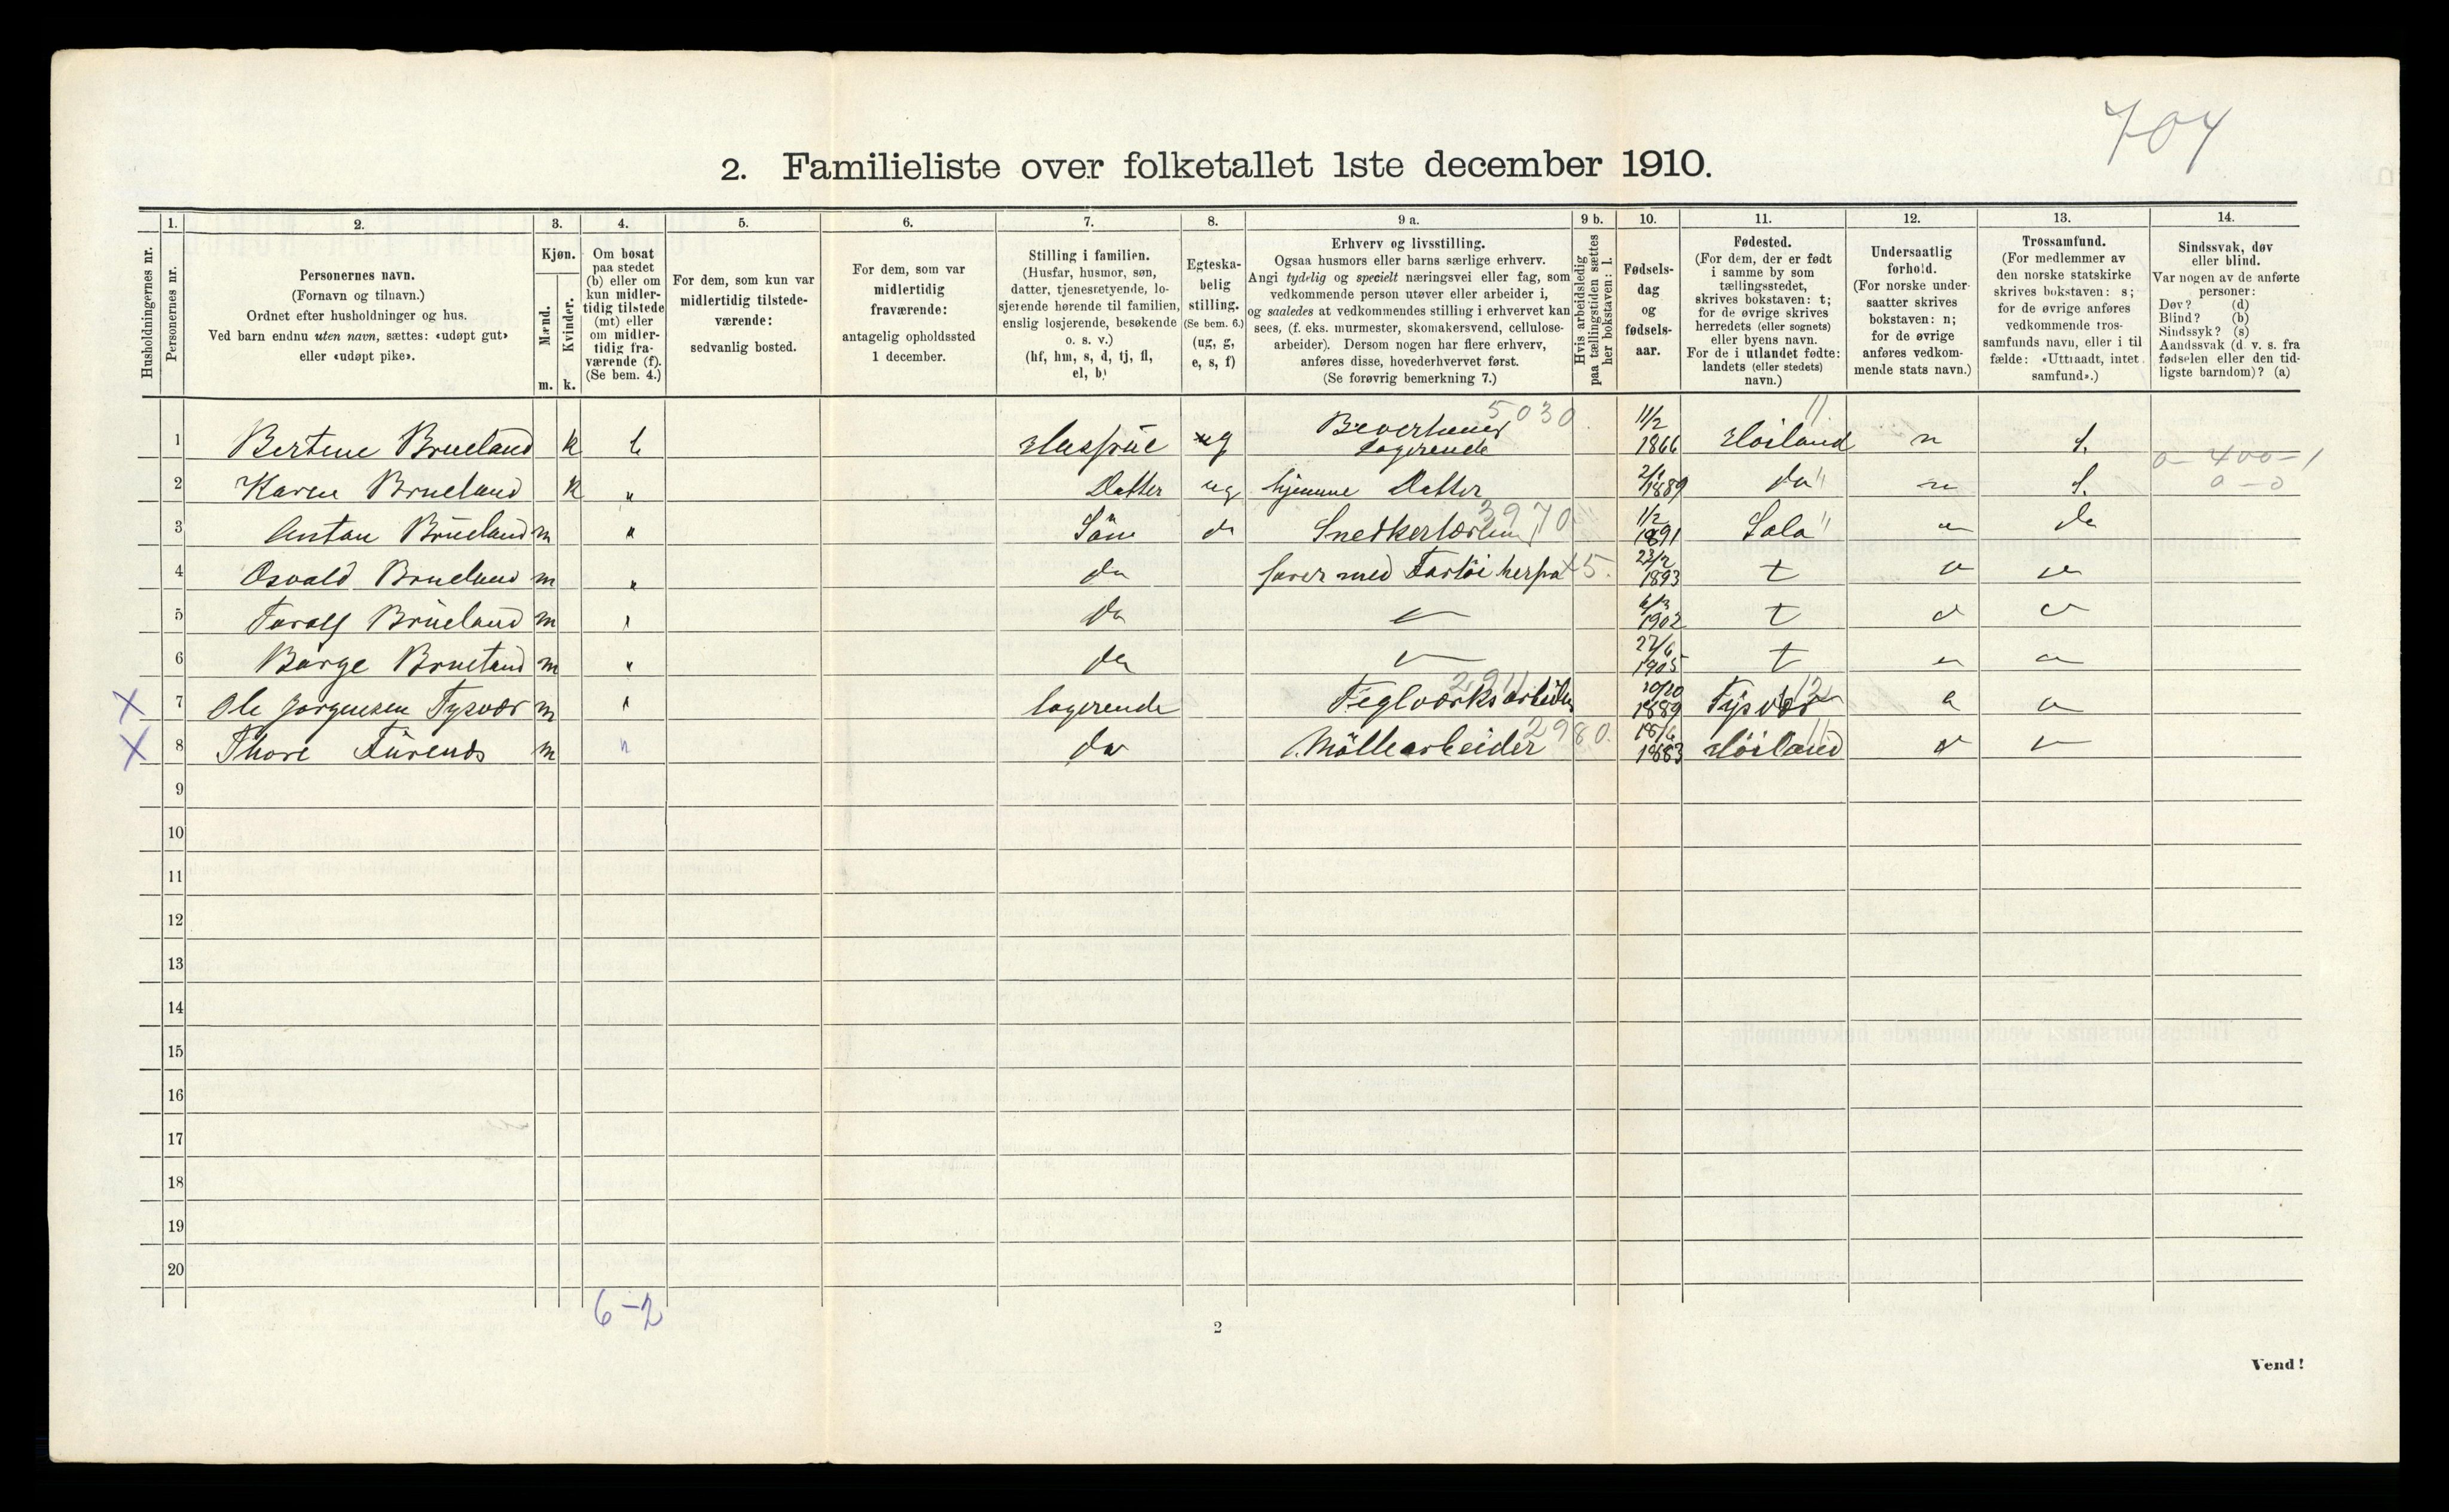 704
2. Familieliste over folketallet 1ste december 1910.
Husholdningernes nr.
1.
Personernes nr.
2.
Personernes navn.
(Fornavn og tilnavn.)
Ordnet efter husholdninger og hus.
Ved barn endnu uten navn, sættes: «udøpt gut»
eller «udøpt pike».
3.
Kjøn.
Mænd.
Kvinder.
m. k.
4.
Om bosat
paa stedet
(b) eller om
kun midler-
tidig tilstede
(mt) eller
om midler-
tidig fra-
værende (f).
(Se bem. 4.)
5.
For dem, som kun var
midlertidig tilstede-
værende:
sedvanlig bosted.
6.
For dem, som var
midlertidig
fraværende:
antagelig opholdssted
1 december.
7.
Stilling i familien.
(Husfar, husmor, søn,
datter, tjenestetyende, lo-
sjerende hørende til familien,
enslig losjerende, besøkende
o. s. v.)
(hf, hm, s, d, tj, fl,
el, b)
8.
Egteska-
belig
stilling.
(Se bem. 6.)
(ug, g,
e, s, f)
9 a.
Erhverv og livsstilling.
Ogsaa husmors eller barns særlige erhverv.
Angi tydelig og specielt næringsvei eller fag, som
vedkommende person utøver eller arbeider i,
og saaledes at vedkommendes stilling i erhvervet kan
sees, (f. eks. murmester, skomakersvend, cellulose-
arbeider). Dersom nogen har flere erhverv,
anføres disse, hovederhvervet først.
(Se forøvrig bemerkning 7.)
9 b.
Hvis arbeidsledig
paa tællingstiden sættes
her bokstaven: l.
10.
Fødsels-
dag
og
fødsels-
aar.
11.
Fødested.
(For dem, der er født
i samme by som
tællingsstedet,
skrives bokstaven: t;
for de øvrige skrives
herredets (eller sognets)
eller byens navn.
For de i utlandet fødte:
landets (eller stedets)
navn.)
12.
Undersaatlig
forhold.
(For norske under-
saatter skrives
bokstaven: n;
for de øvrige
anføres vedkom-
mende stats navn.)
13.
Trossamfund.
(For medlemmer av
den norske statskirke
skrives bokstaven: s;
for de øvrige anføres
vedkommende tros-
samfunds navn, eller i til
fælde: «Uttraadt, intet
samfund».)
14.
Sindssvak, døv
eller blind.
Var nogen av de anførte
personer:
Døv? (d)
Blind? (b)
Sindssyk? (s)
Aandssvak (d. v. s. fra
fødselen eller den tid-
ligste barndom)? (a)
1 Bertine Brueland k b Husfrue ug 5030 Logerende 11/2 1866 Höiland 11 n S. 0-400-1
2 Karen Brueland k " Datter ug hjemme Datter 1889 do 11 n S. 0-0
3 Anton Brueland m " Sön do 3970 1/2 1891 Sola 11 do
4 Osvald Brueland m " do farer med Fartöi herfra x5. 23/2 1893 t
5 Toralf Brueland m " do 1902 t
6 Börge Brueland m " do 27/6 1905 t
X 7 Ole Jorgensen Tysvær m " logerende 2911 Teglværksarbeider 20/10 1889 Tysvær 12
X 8 Thore m " do 2980. Möllearbeider 18/6 1883 Höiland 11
9
10
11
12
13
14
15
16
17
18
19
20
6-2
2
Vend!